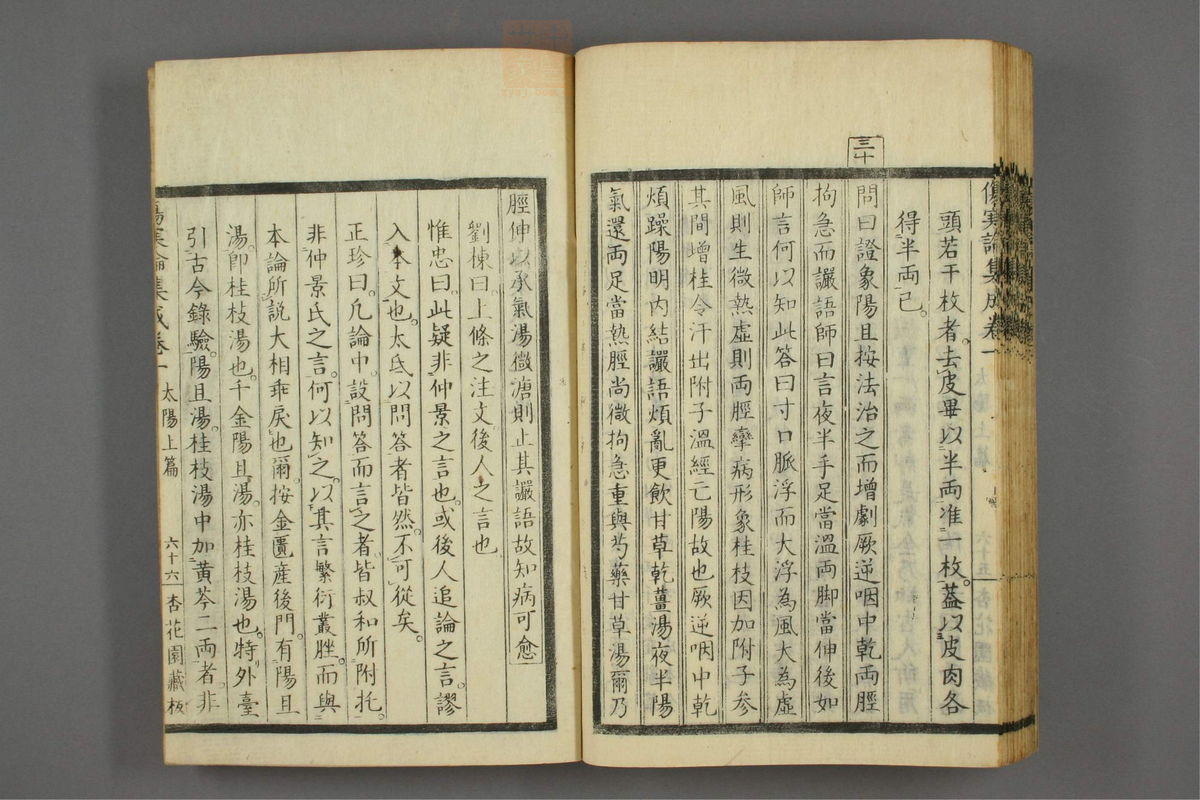 傷寒論集成卷一
頭若干枚者去皮畢以半兩准一枚。葢以皮肉各
得半兩已。
三十
問曰證象陽且按法治之而增劇厥逆咽中乾兩脛
拘急而讝語師曰言夜半手足當溫兩脚當伸後如
師言何以知此答曰寸口脈浮而大浮為風大為虛
風則生微熱虛則兩脛攣病形象桂枝因加附子參
其間增桂令汗出附子溫經亡陽故也厥逆咽中乾
煩躁陽明內結讝語煩亂更飲甘草乾薑湯夜半陽
氣還兩足當熱脛尚微拘急重與芍藥甘草湯爾乃
脛伸以承氣湯微溏則止其讝語故知病可愈
劉棟曰。上條之注文後人之言也
惟忠曰。此疑非仲景之言也。或後人追論之言謬
入本文也。太氐以問答者皆然。不可從矣。
正珍曰。凡論中。設問答而言之者。皆叔和所附托。
非仲景氏之言。何以知之。以其言繁衍叢脞。而與
本論所說大相乖戾也爾。按金匱產後門。有陽且
湯。卽桂枝湯也。千金陽且湯。亦桂枝湯也。特外臺
引古今錄驗。陽且湯。桂枝湯中加黃芩二兩者。非
傷寒論集成卷一 太陽上篇 六十六 杏花園藏板